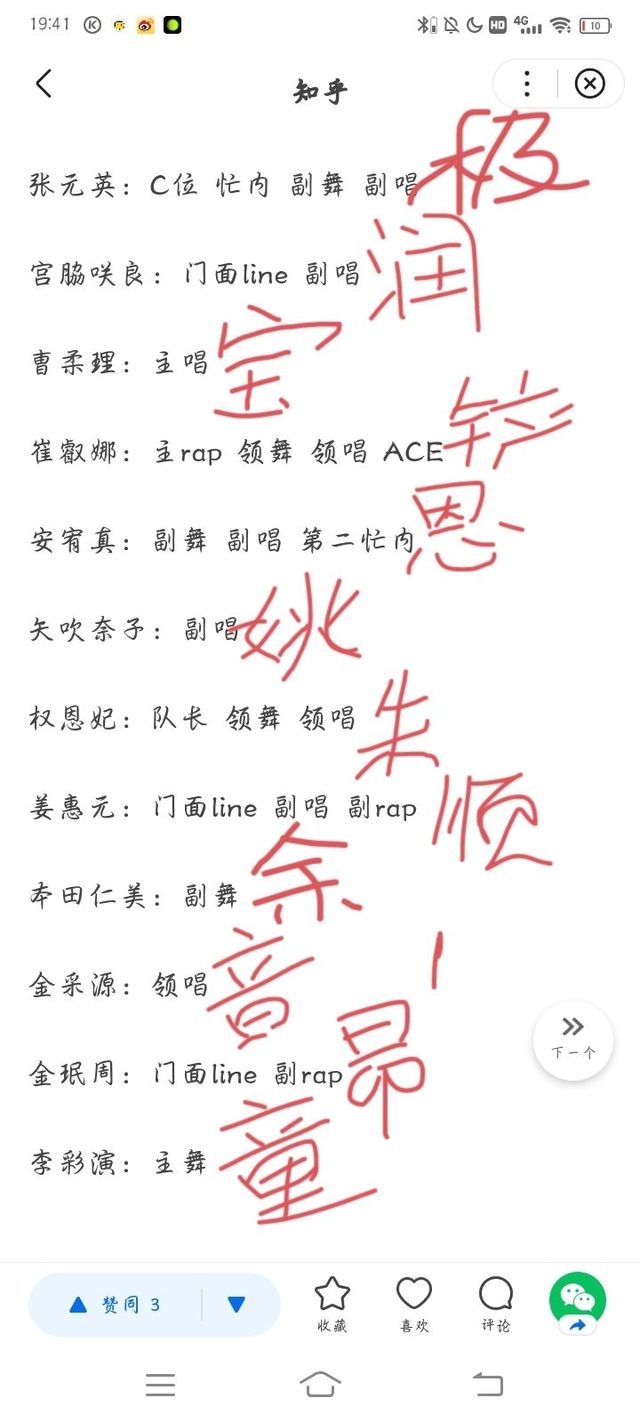 19:41 HD 4G 10
知乎
张元英：C位 忙内 副舞 副唱 极
宫脇咲良：门面line 副唱 润
曹柔理：主唱 宝
崔叡娜：主rap 领舞 领唱 ACE 铲
安宥真：副舞 副唱 第二忙内 恩
矢吹奈子：副唱 姚
权恩妃：队长 领舞 领唱 朱
姜惠元：门面line 副唱 副rap 顺
本田仁美：副舞 余
金采源：领唱 音
金珉周：门面line 副rap 昂
李彩演：主舞 童
下一个
赞同 3
收藏 喜欢 评论